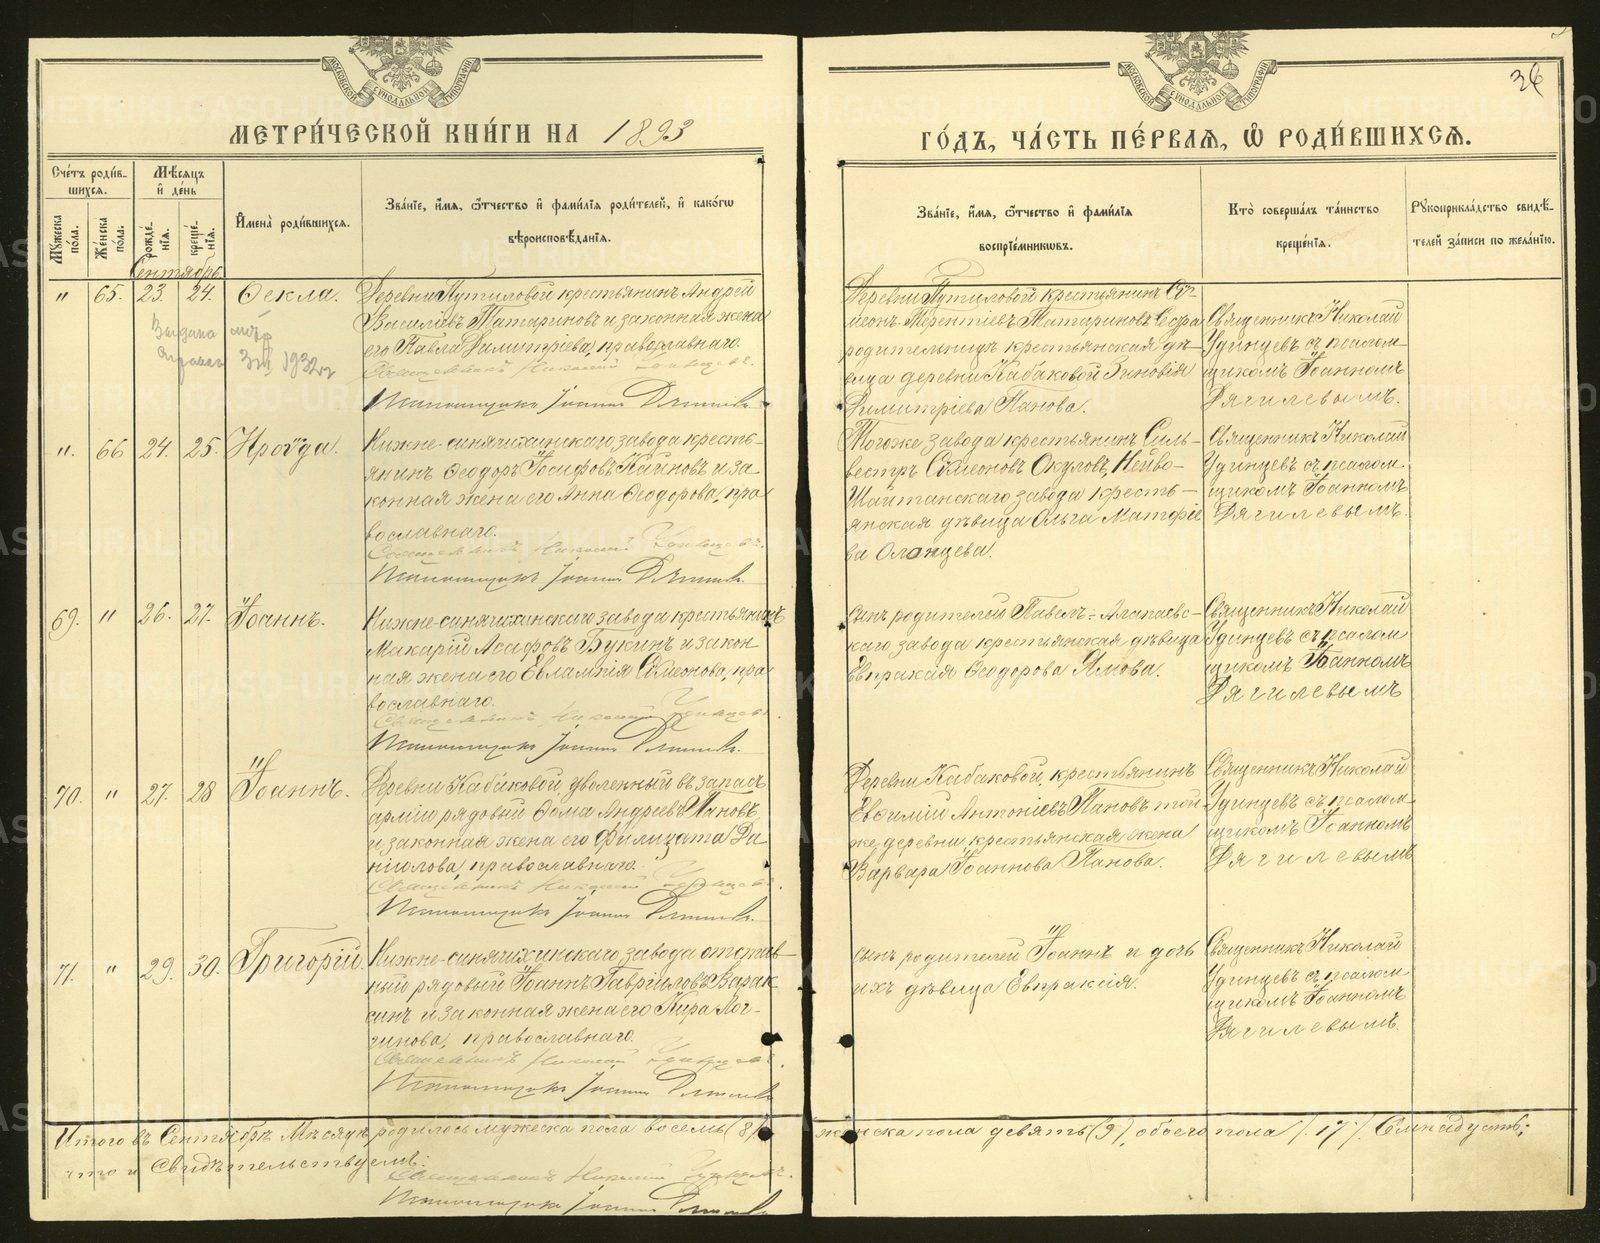 МЕТРИ́ЧЕСКОЙ КНИ́ГИ НА 1893
ГО́ДЪ, ЧА́СТЬ ПЕ́РВАЯ, Ѽ РОДИ́ВШИХСЯ.
36
МОСКОВСКОЙ СѴНОДАЛЬНОЙ ТИПОГРАФІИ
МОСКОВСКОЙ СѴНОДАЛЬНОЙ ТИПОГРАФІИ
Сче́тъ роди́в-
шихся.
Мѣ́сяцъ
и҆ де́нь
Мꙋ́жеска по́ла.
Же́нска по́ла.
рожде́-
нія.
креще́-
нія.
И҆мена̀ роди́вшихся.
Зва́ніе, и҆́мя, ѻ҆́тчество и҆ фами́лія роди́телей, и҆ како́гѡ
вѣроисповѣ́данія.
Зва́ніе, и҆́мя, ѻ҆́тчество и҆ фами́лія
воспріе́мникѡвъ.
Кто̀ соверша́лъ та́инство
креще́нія.
Рꙋкоприкла́дство свидѣ́-
телей за́писи по жела́нію.
Сентябрь
" 65. 23. 24. Ѳекла.
Деревни Путиловой крестьянинъ Андрей
Василіевъ Татариновъ и законная жена
его Павла Димитріева, православнаго.
Священникъ Николай Удинцевъ.
Псаломщикъ Іоаннъ Дягилевъ.
Выдана
1932 г
Деревни Путиловой крестьянинъ Сѵ-
меонъ Терентіевъ Татариновъ. Сестра
родительницы крестьянская дѣ-
вица деревни Кабаковой Зиновія
Димитріева Панова.
Священникъ Николай
Удинцевъ съ псалом-
щикомъ Іоанномъ
Дягилевымъ.
" 66 24. 25. Ироида.
Нижне-синячихинскаго завода кресть-
янинъ Ѳеодоръ Іосифовъ Каиновъ и за-
конная жена его Анна Ѳеодорова, пра
вославнаго.
Священникъ Николай Удинцевъ.
Псаломщикъ Іоаннъ Дягилевъ.
Тогоже завода крестьянинъ Силь-
вестръ Сѵмеоновъ Окуловъ, Нейво-
Шайтанскаго завода кресть-
янская дѣвица Ольга Матѳіе
ва Оланцева.
Священникъ Николай
Удинцевъ съ псалом
щикомъ Іоанномъ
Дягилевымъ.
69. " 26. 27. Іоаннъ.
Нижне-синячихинскаго завода крестьянинъ
Макарій Асафовъ Букинъ и закон
ная жена его Евлампія Сѵмеонова, пра
вославнаго.
Священникъ Николай Удинцевъ.
Псаломщикъ Іоаннъ Дягилевъ.
сынъ родителей Павелъ - Алапаевс-
каго завода крестьянская дѣвица
Евпраксія Ѳеодорова Ямова.
Священникъ Николай
Удинцевъ съ псалом
щикомъ Іоанномъ
Дягилевымъ
70. " 27. 28 Іоаннъ.
Деревни Кабаковой, уволенный въ запасъ
арміи рядовый Ѳома Андреевъ Пановъ
и законная жена его Филицата Да
ніилова, православнаго.
Священникъ Николай Удинцевъ.
Псаломщикъ Іоаннъ Дягилевъ.
Деревни Кабаковой, крестьянинъ
Евѳимій Антоніевъ Пановъ той-
же деревни крестьянская жена
Варвара Іоаннова Панова.
Священникъ Николай
Удинцевъ съ псалом-
щикомъ Іоанномъ
Дягилевымъ
71. " 29. 30. Григорій.
Нижне-синячихинскаго завода отстав-
ный рядовый Іоаннъ Гавріиловъ Варак
синъ и законная жена его Кира Лог-
гинова, православнаго.
Священникъ Николай Удинцевъ.
Псаломщикъ Іоаннъ Дягилевъ
сынъ родителей Іоаннъ и дочь
ихъ дѣвица Евпраксія.
Священникъ Николай
Удинцевъ съ псалом-
щикомъ Іоанномъ
Дягилевымъ.
Итого въ Сентябрѣ Мѣсяцѣ родилось мужеска пола восемь (8)
женска пола девять (9), обоего пола /.17./. Семнадцать;
что и Свидѣтельствуемъ:
Священникъ Николай Удинцевъ.
Псаломщикъ Іоаннъ Дягилевъ